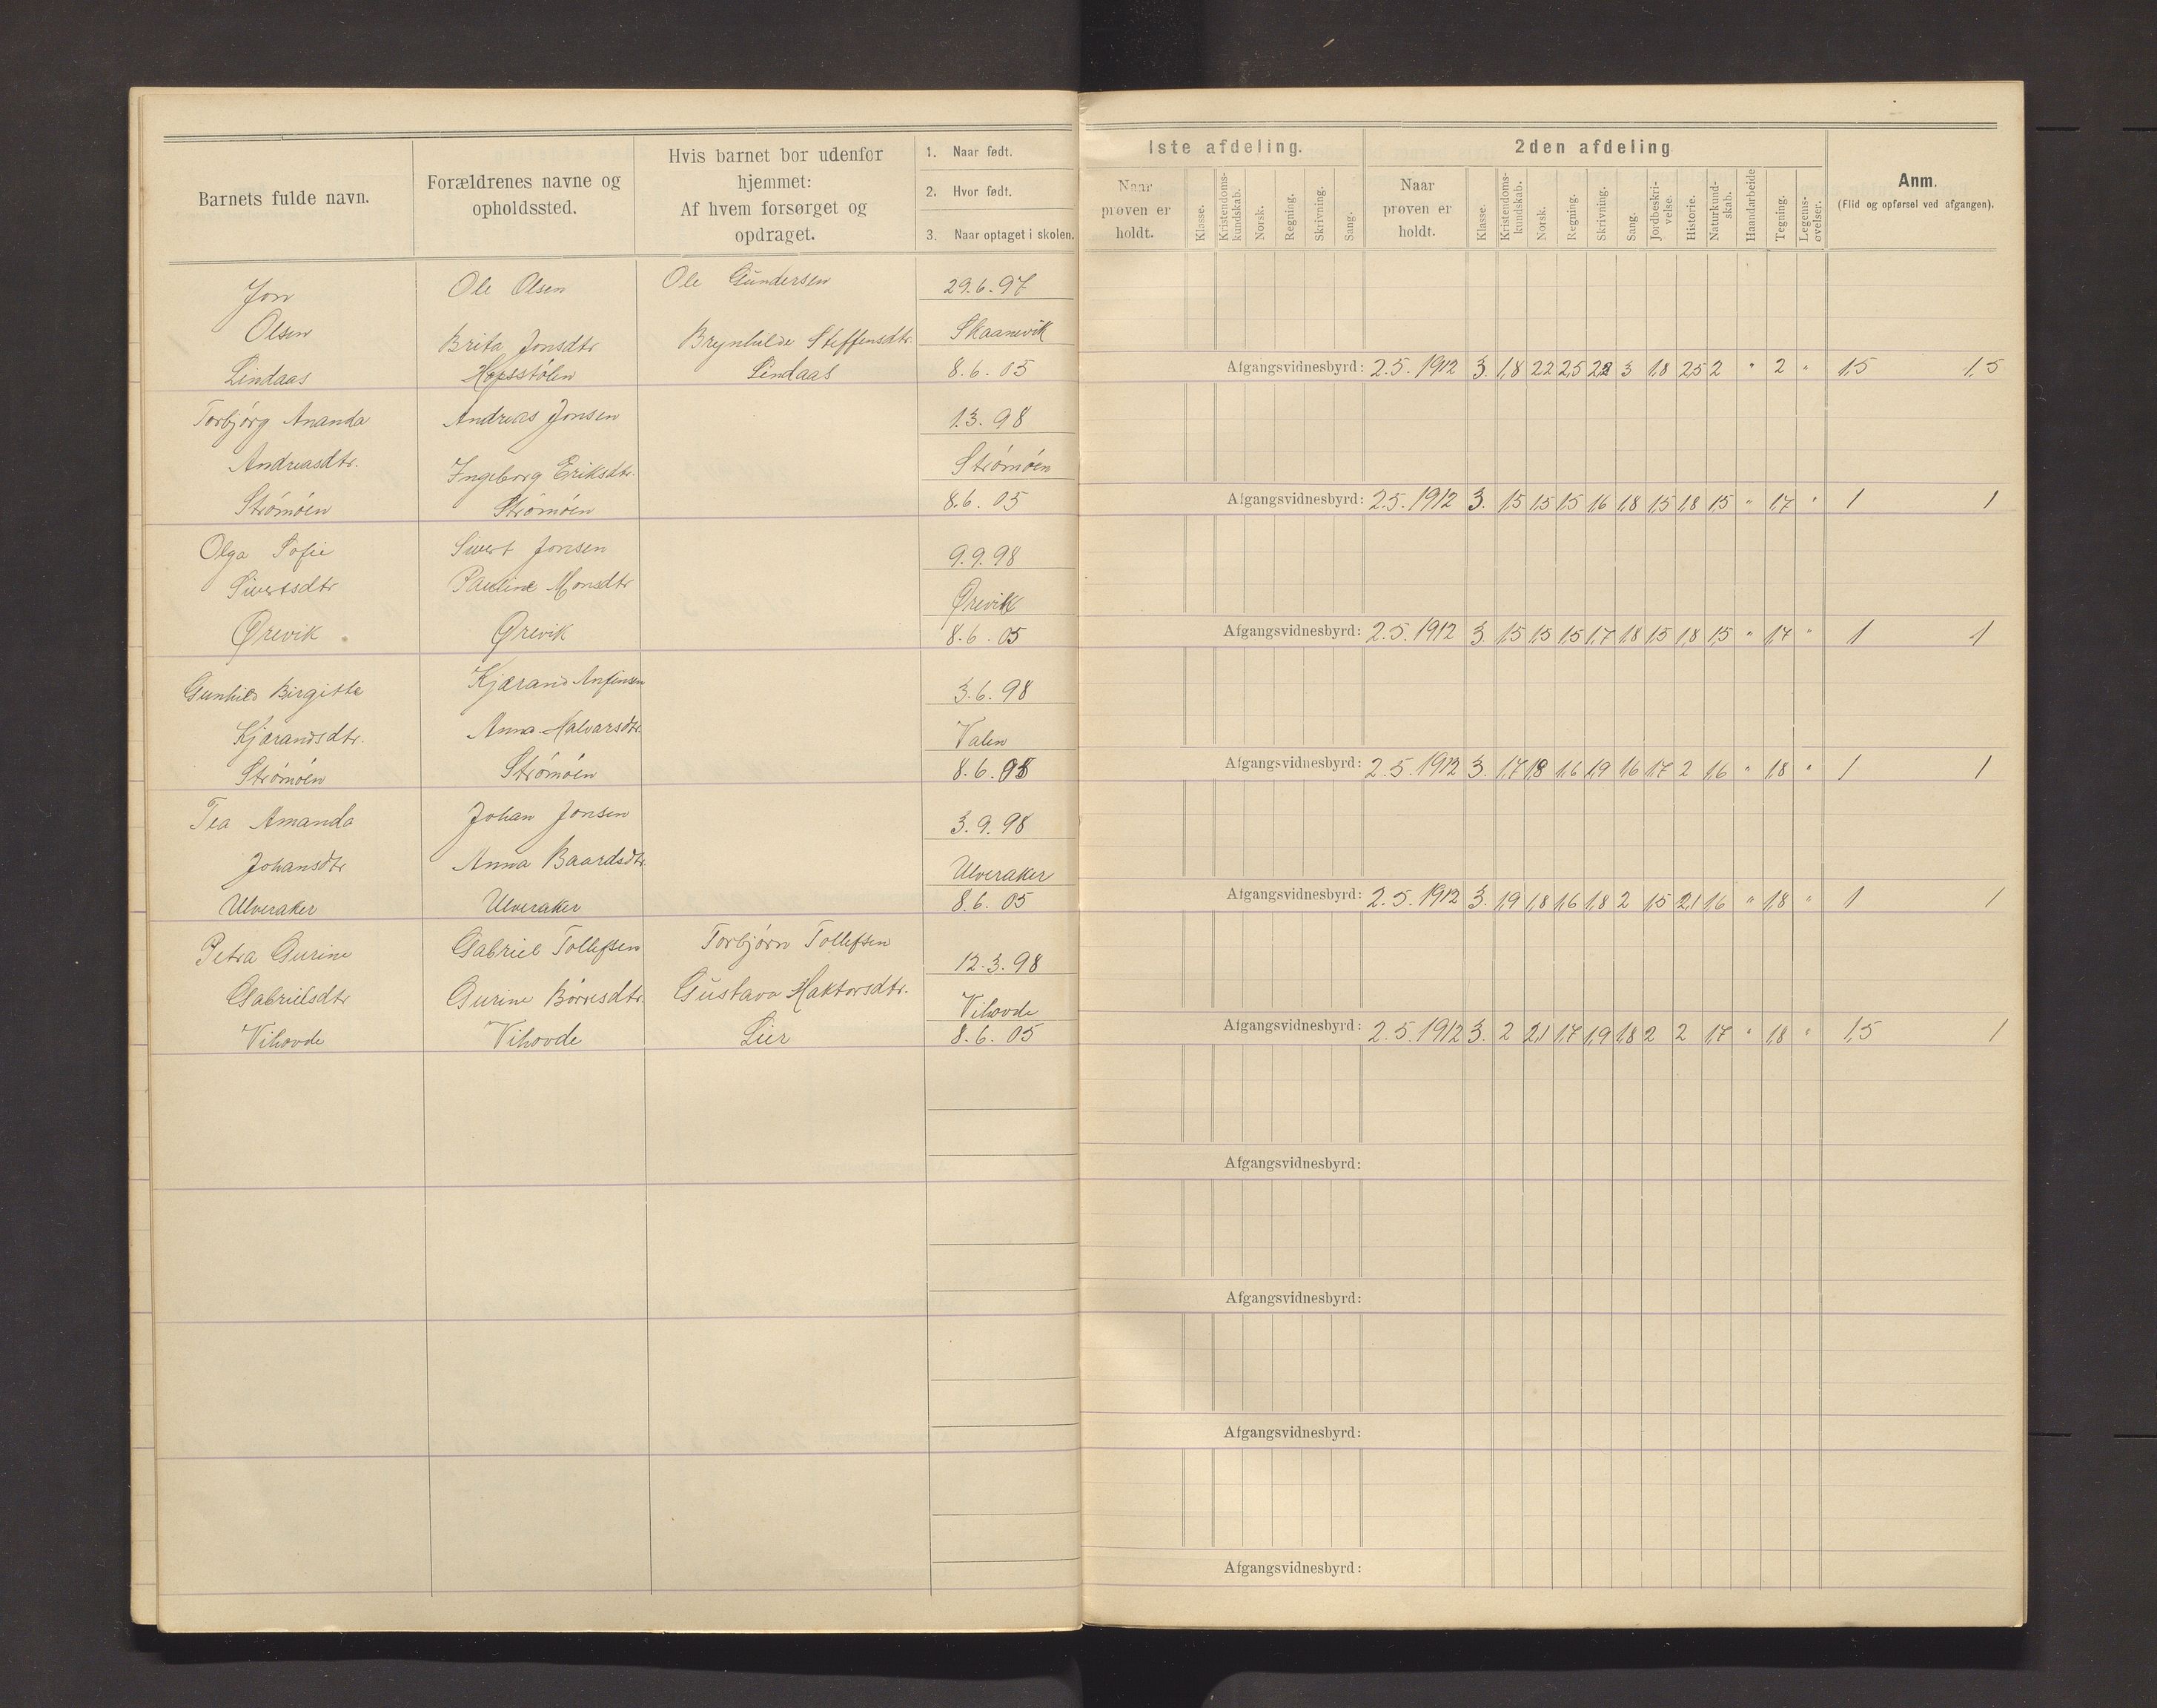 Barnets fulde navn.
Forældrenes navne og
opholdssted.
Hvis barnet bor udenfor
hjemmet:
Af hvem forsørget og
opdraget.
1. Naar født.
2. Hvor født.
3. Naar optaget i skolen.
1ste afdeling.
2den afdeling
Naar
prøven er
holdt.
Klasse.
Kristendoms-
kundskab.
Norsk.
Regning.
Skrivning.
Sang.
Naar
prøven er
holdt.
Klasse.
Kristendoms-
kundskab.
Norsk.
Regning.
Skrivning.
Sang.
Jordbeskri-
velse.
Historie.
Naturkund-
skab.
Haandarbeide
Tegning.
Legems-
øvelser.
Anm.
(Flid og opførsel ved afgangen).
Jon Ole Olsen Ole Gundersen 29.6.97
Olsen Brita Jonsdtr Brynhilde Steffensdtr. Skaanevik
Lindaas Lindaas 8.6.05 Afgangsvidnesbyrd: 2.5.1912 3. 1,8 22 2,5 22 3 1,8 25 2 " 2 " 1,5 1,5
Torbjørg Ananda Andreas Jonsen 1.3.98
Andreasdtr. Ingeborg Eriksdtr. Strømøen
Strømøen Strømøen 8.6.05 Afgangsvidnesbyrd: 2.5.1912 3. 1,5 1,5 1,5 1,6 1,8 1,5 1,8 1,5 " 1,7 " 1 1
Olga Sofie Sivert Jonsen 9.9.98
Sivertsdtr Pauline Monsdtr Ørevik
Ørevik Ørevik 8.6.05 Afgangsvidnesbyrd: 2.5.1912 3. 1,5 1,5 1,5 1,7 1,8 1,5 1,8 1,5 " 1,7 " 1 1
Gunhild Birgitte Kjærand Anfinsen 3.6.98
Kjærandsdtr. Anna Halvarsdtr. Valen
Strømøen Strømøen 8.6.05 Afgangsvidnesbyrd: 2.5.1912 3. 1,7 1,8 1,6 1,9 1,6 1,7 2 1,6 " 1,8 " 1 1
Tea Amanda Johan Jonsen 3.9.98
Johansdtr Anna Baardsdtr. Ulveraker
Ulveraker Ulveraker 8.6.05 Afgangsvidnesbyrd: 2.5.1912 3. 1,9 1,8 1,6 1,8 2 1,5 2,1 1,6 " 1,8 " 1 1
Petra Gurine Gabriel Tollefsen Torbjørn Tollefsen 12.3.98
Gabrielsdtr Gurine Børresdtr. Gustava Haktorsdtr. Vihovde
Vihovde Vihovde Lier 8.6.05 Afgangsvidnesbyrd: 2.5.1912 3. 2 2,1 1,7 1,9 1,8 2 2 1,7 " 1,8 " 1,5 1
Afgangsvidnesbyrd:
Afgangsvidnesbyrd:
Afgangsvidnesbyrd:
Afgangsvidnesbyrd: